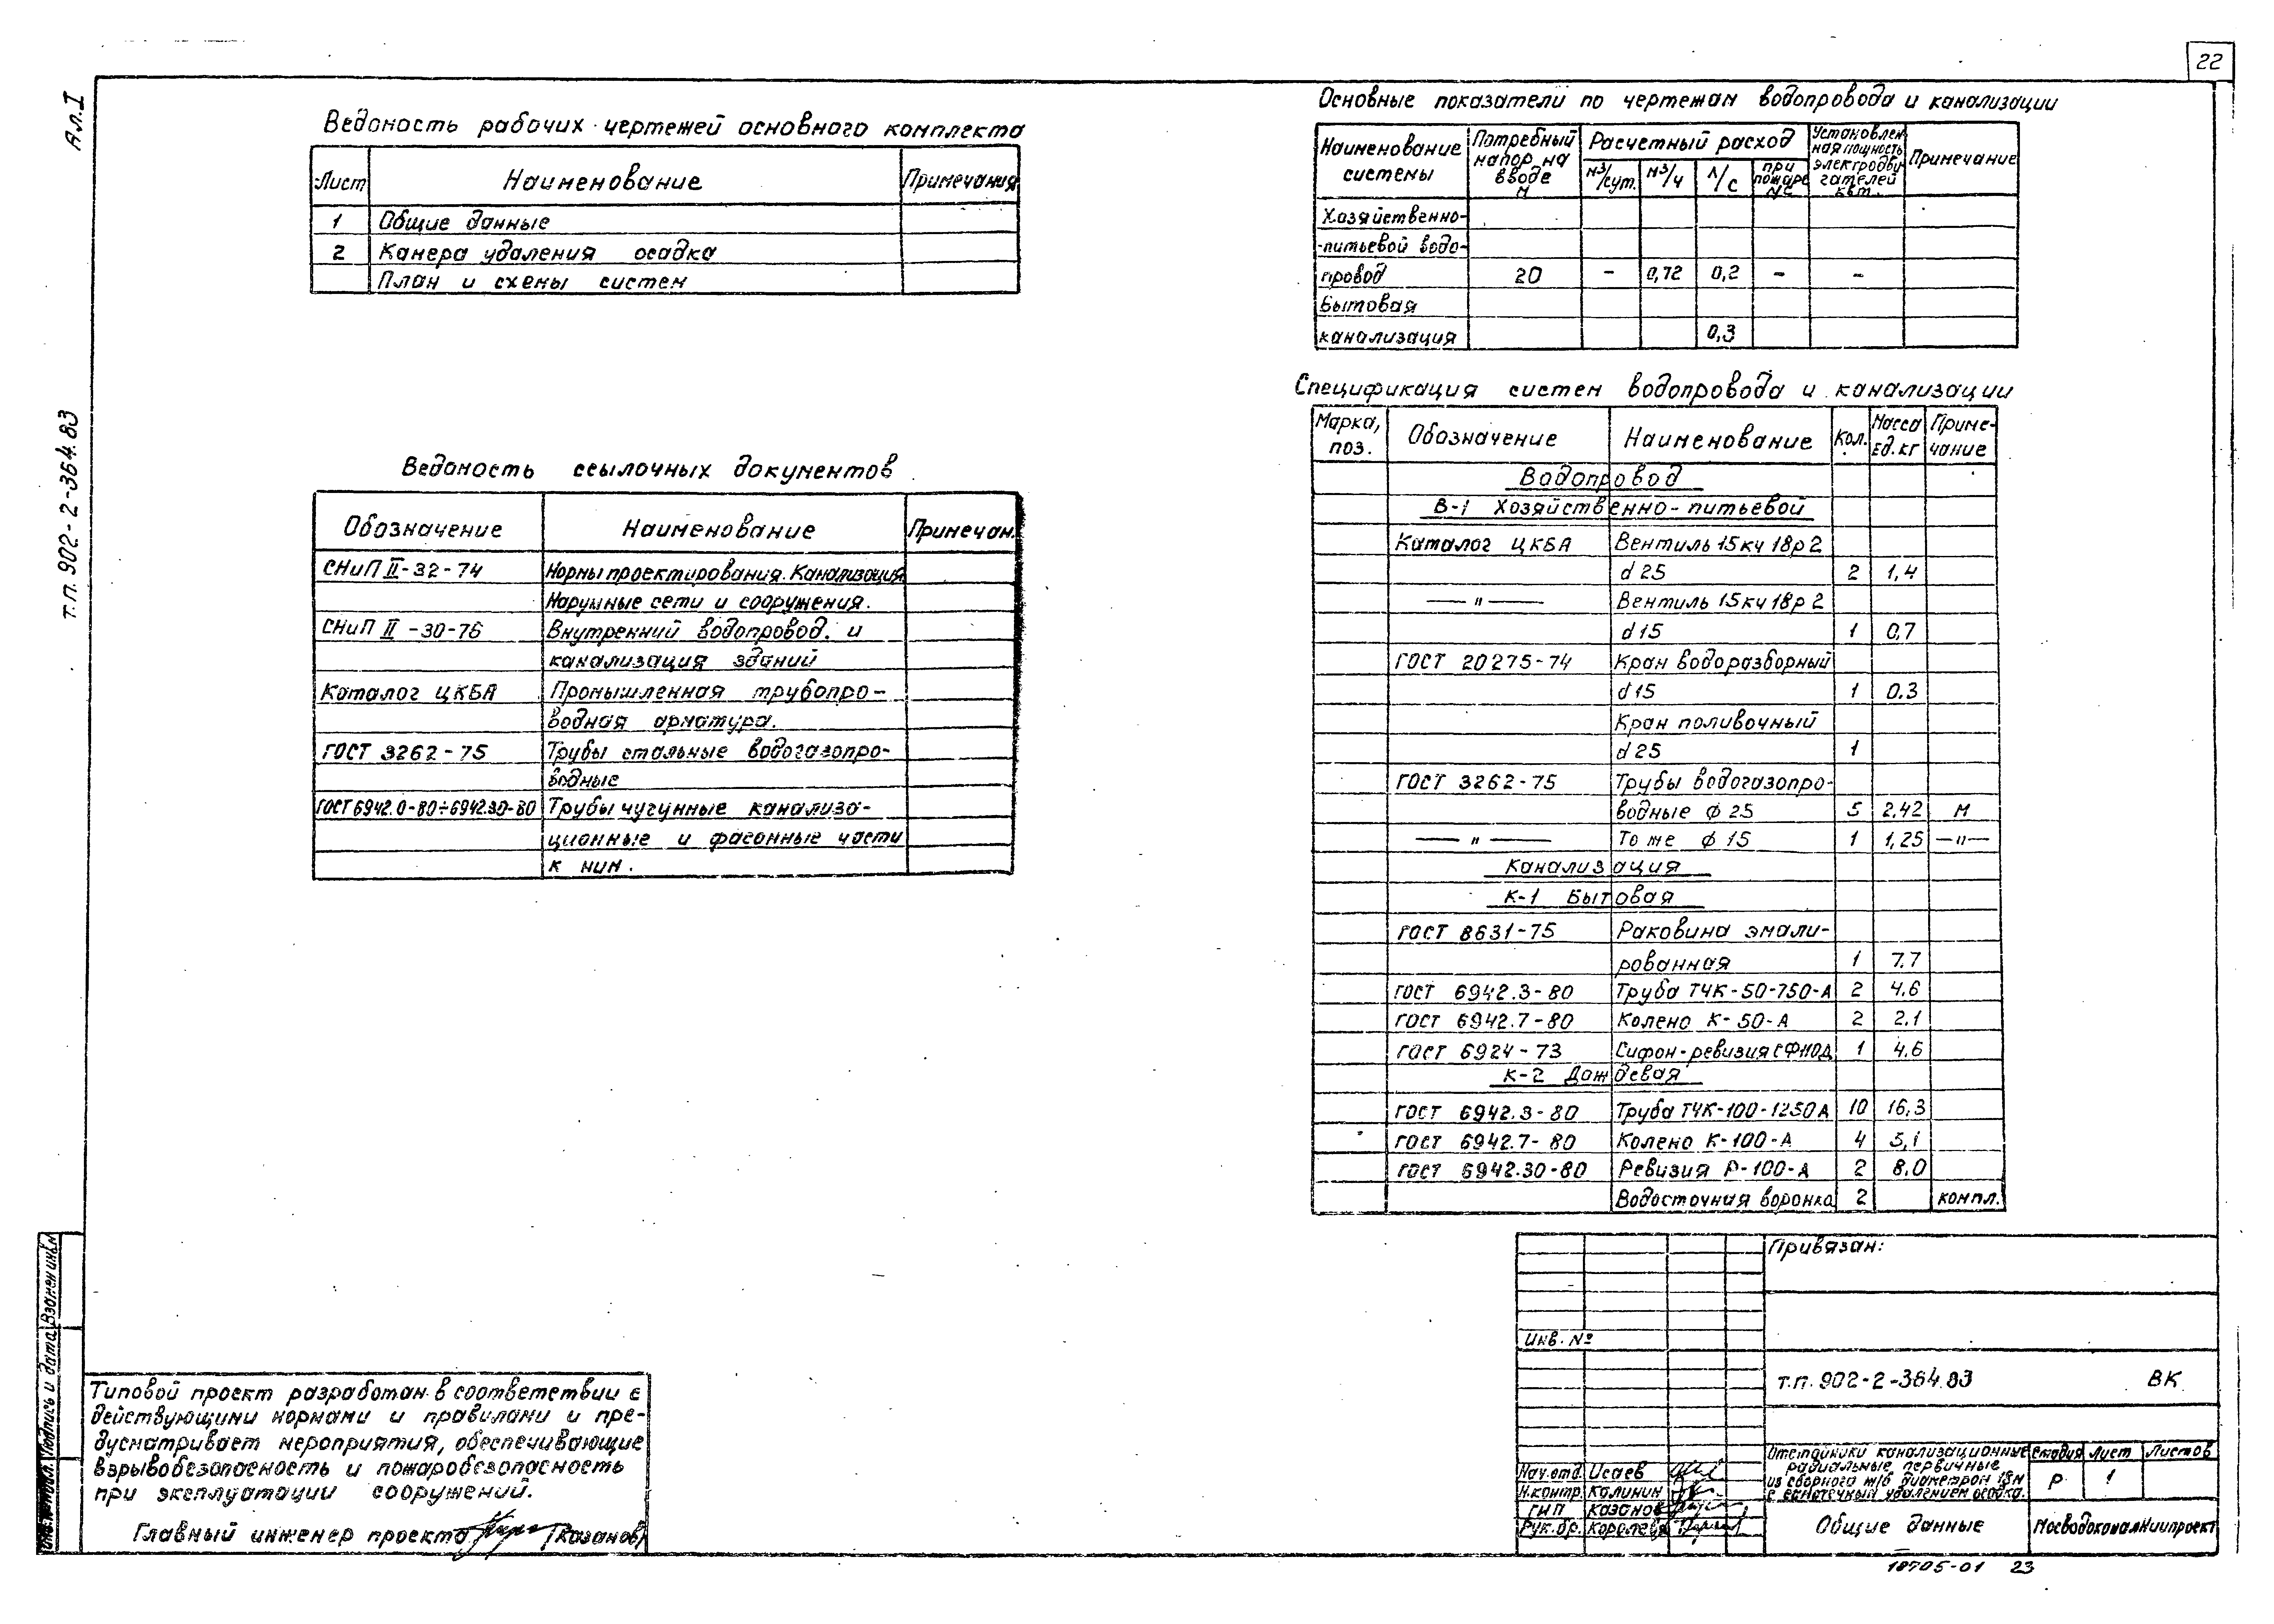 22
Ал.I
т.п. 902-2-364.83
Ведомость рабочих чертежей основного комплекта
Лист Наименование Примечания
1 Общие данные
2 Камера удаления осадка
План и схемы систем
Ведомость ссылочных документов
Обозначение Наименование Примечан.
СНиП II-32-74 Нормы проектирования. Канализация
Наружные сети и сооружения.
СНиП II-30-76 Внутренний водопровод. и
канализация зданий
Каталог ЦКБА Промышленная трубопро-
водная арматура.
ГОСТ 3262-75 Трубы стальные водогазопро-
водные
ГОСТ 6942.0-80÷6942.30-80 Трубы чугунные канализа-
ционные и фасонные части
к ним.
Основные показатели по чертежам водопровода и канализации
Наименование системы Потребный напор на вводе м Расчетный расход м³/сут. м³/ч л/с при пожаре л/с Установлен ная мощность электродви гателей квт. Примечание
Хозяйственно-
-питьевой водо-
провод 20 - 0,72 0,2 - -
Бытовая
канализация 0,3
Спецификация систем водопровода и канализации
Марка, поз. Обозначение Наименование Кол. Масса Ед. кг Приме- чание
Водопровод
В-1 Хозяйственно-питьевой
Каталог ЦКБА Вентиль 15кч 18р2
d 25 2 1,4
— " — Вентиль 15кч 18р2
d 15 1 0,7
ГОСТ 20275-74 Кран водоразборный
d 15 1 0.3
Кран поливочный
d 25 1
ГОСТ 3262-75 Трубы водогазопро-
водные ф 25 5 2,42 м
— " — То же ф 15 1 1,25 —"—
Канализация
К-1 Бытовая
ГОСТ 8631-75 Раковина эмали-
рованная 1 7.7
ГОСТ 6942.3-80 Труба ТЧК-50-750-А 2 4.6
ГОСТ 6942.7-80 Колено К-50-А 2 2.1
ГОСТ 6924-73 Сифон-ревизия 1 4.6
К-2 Дождевая
ГОСТ 6942.3-80 Труба ТЧК-100-1250А 10 16,3
ГОСТ 6942.7-80 Колено К-100-А 4 5,1
ГОСТ 6942.30-80 Ревизия Р-100-А 2 8.0
Водосточная воронка 2 компл.
Типовой проект разработан в соответствии с
действующими нормами и правилами и пре-
дусматривает мероприятия, обеспечивающие
взрывобезопасность и пожаробезопасность
при эксплуатации сооружений.
Главный инженер проекта (Казанов)
Взамен инв.№
Подпись и дата
Привязан:
Инв. №
т.п. 902-2-364.83 ВК
Нач.отд. Исаев
Н.контр. Калинин
ГИП Казанов
Рук.бр. Королева
Отстойники канализационные
радиальные первичные
из сборного ж/б диаметром 18м
с самотечным удалением осадка.
стадия Лист Листов
Р 1
Общие данные
МосводоканалНиипроект
18705-01 23